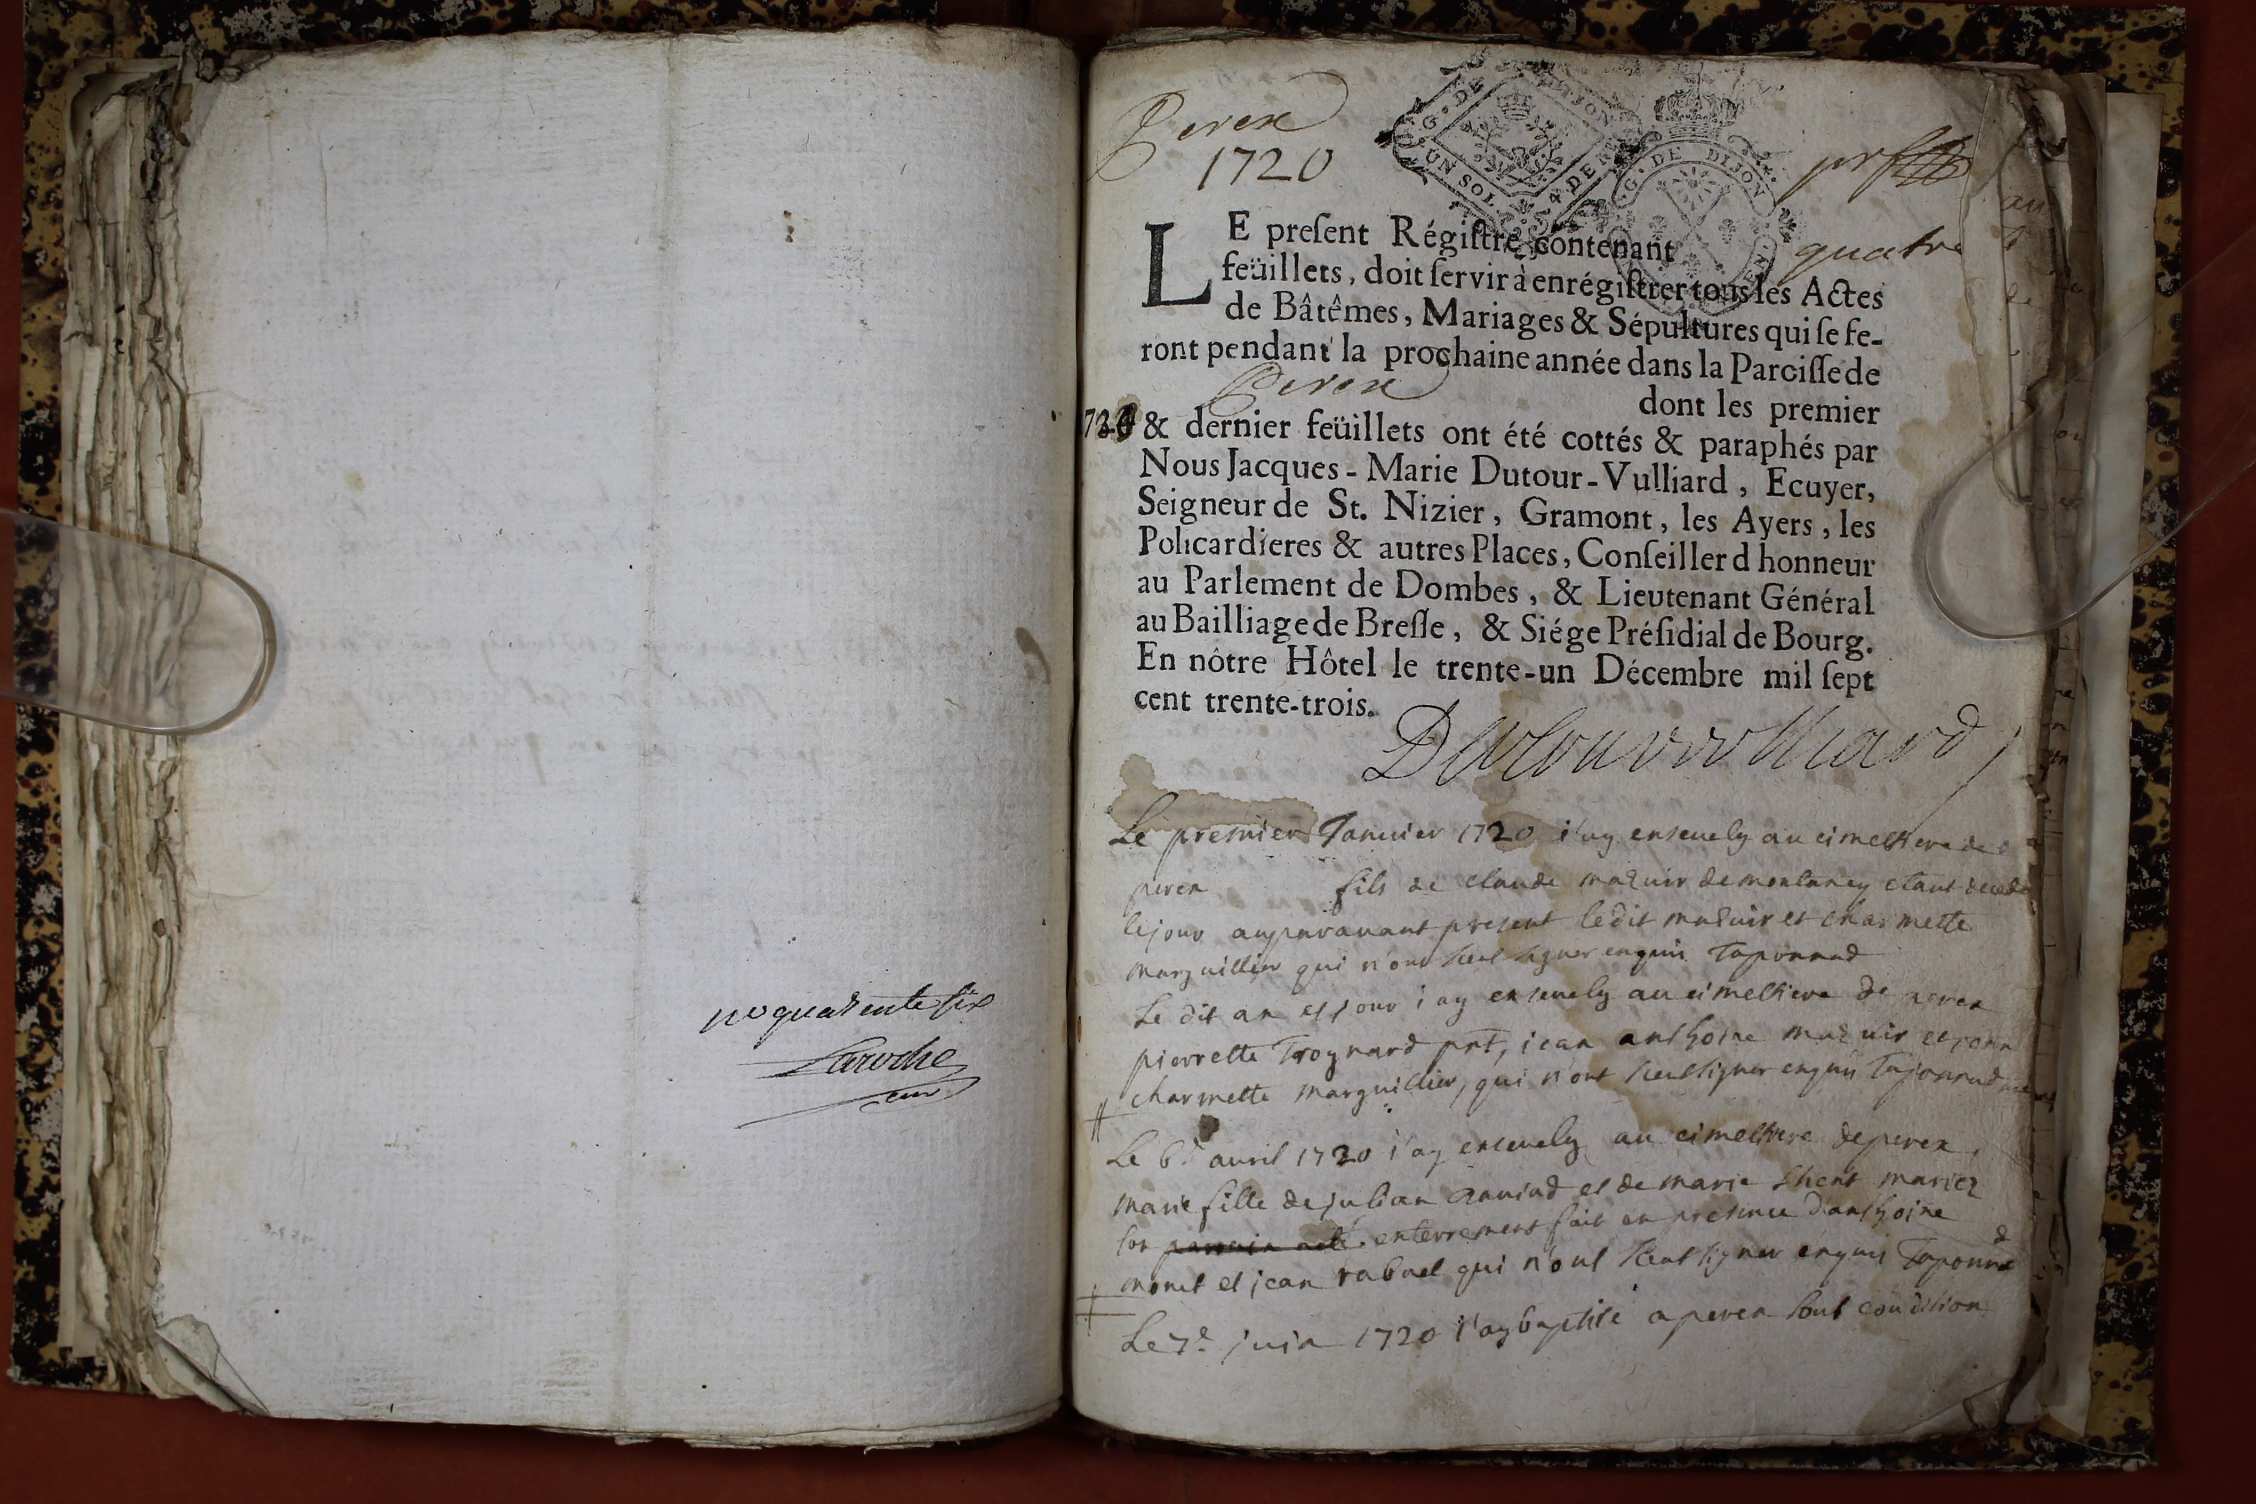 no quarente six
Laroche
cur
Perex
1720
G. DE DIJON
UN SOL
4 DE RE
G. DE DIJON
quatre
LE preſent Régiſtre contenant
feüillets, doit ſervir à enrégiſtrer tous les Actes
de Bâtêmes, Mariages & Sépultures qui ſe fe-
ront pendant la prochaine année dans la Paroiſſe de
Perex
dont les premier
& dernier feüillets ont été cottés & paraphés par
Nous Jacques-Marie Dutour-Vulliard, Ecuyer,
Seigneur de St. Nizier, Gramont, les Ayers, les
Policardieres & autres Places, Conſeiller d honneur
au Parlement de Dombes, & Lieutenant Général
au Bailliage de Breſſe, & Siége Préſidial de Bourg.
En nôtre Hôtel le trente-un Décembre mil ſept
cent trente-trois.
Dutour vulliard
Le premier Januier 1720 i'ay enseuely au cimettiere de
perex fils de claude mazuir de montaney etant decede
le jour auparauant present ledit mazuir et charmette
marguillier qui n'ont sceu signer enquis Taponnad
Le dit an et jour i'ay enseuely au cimettiere de perex
pierrette Trognard pnt, iean anthoine mazuir et jean
charmette marguillier, qui n'ont sceu signer enquis Taponnad
Le 6e auril 1720 i'ay enseuely au cimettiere de perex
marie fille de julian et de marie mariez
son enterrement fait en presence d'anthoine
monet et jean rabuel qui n'ont sceu signer enquis Taponnad
Le 7e juin 1720 i'ay baptisé a perex sous condition